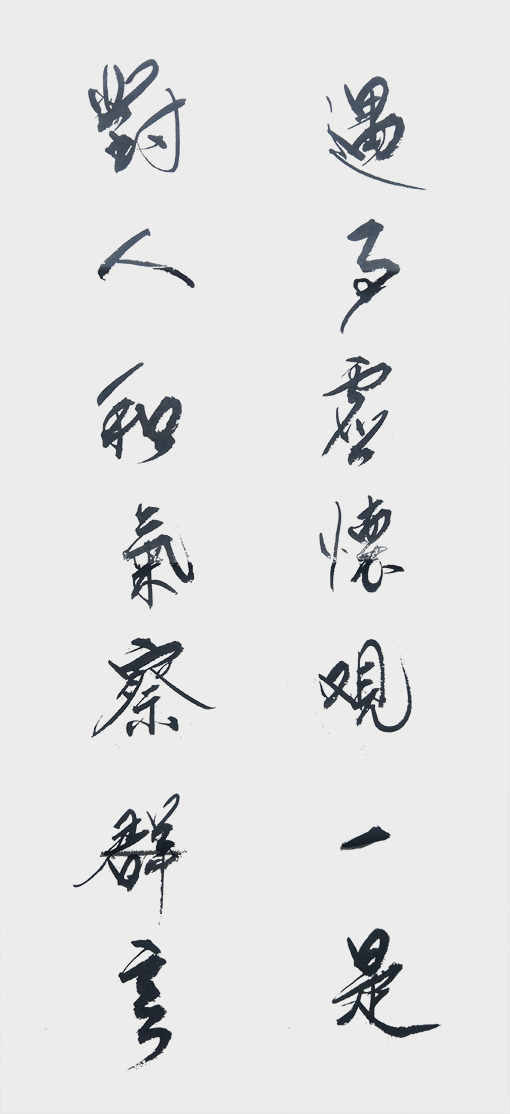 遇事虚懷观一是
對人和氣察群言